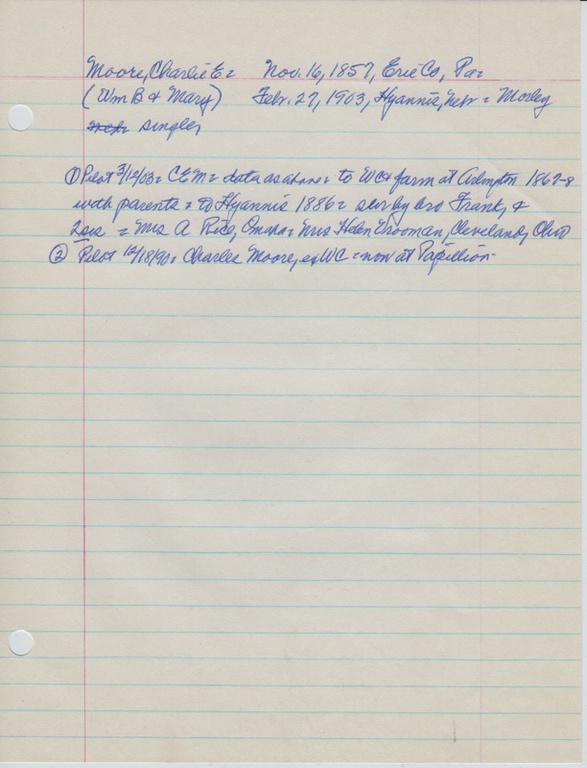 Moore, Charlie E = Nov. 16, 1857, Erie Co, Pa =
(Wm B & Mary) Febr. 27, 1903, Hyannis, Nebr = Morley
single,
① Pilot 3/12/03 = CEM = data as above = to WC & farm at Arlington 1867-8
with parents = to Hyannis 1886 = surv by bro Frank, &
2 sis = Mrs A Rice, Omaha = Mrs Helen Vrooman, Cleveland, Ohio
② Pilot 12/18/90 = Charles Moore, ex WC = now at Papillion